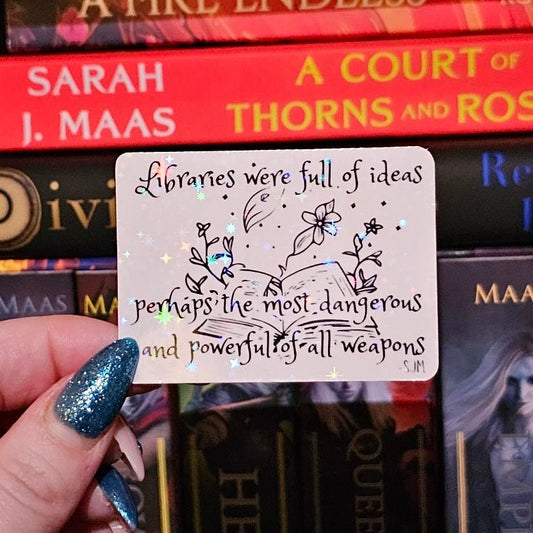 A FIRE ENDLESS
SARAH
J. MAAS
A COURT OF
THORNS AND ROS
Divi
Re
Libraries were full of ideas
perhaps the most dangerous
and powerful of all weapons
-SJM
MAAS
MA
MAA
HE
QUEE
EMPI